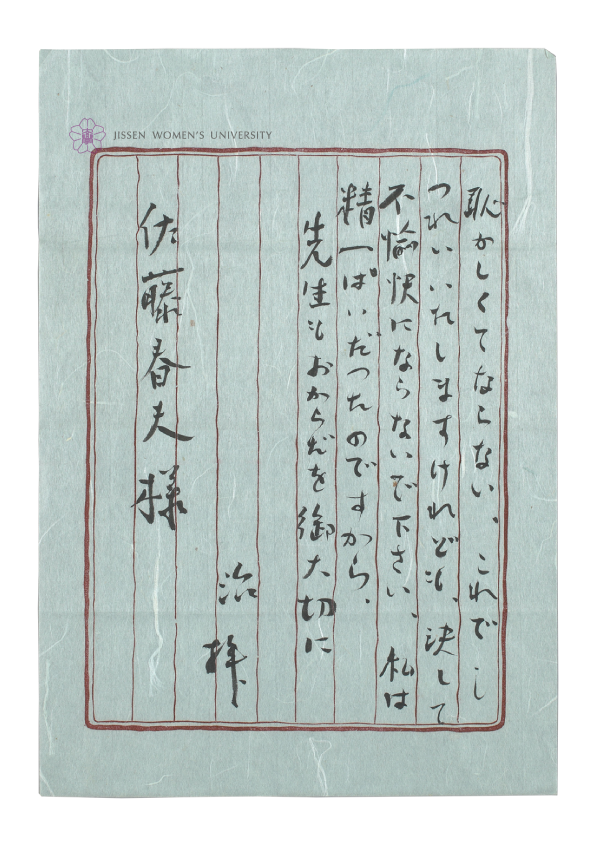 JISSEN WOMEN'S UNIVERSITY
恥かしくてならない、これでし
つれいいたしますけれども、決して
不愉快にならないで下さい、私は
精一ぱいだつたのですから、
先生もおからだを御大切に
治
拝
佐藤春夫様